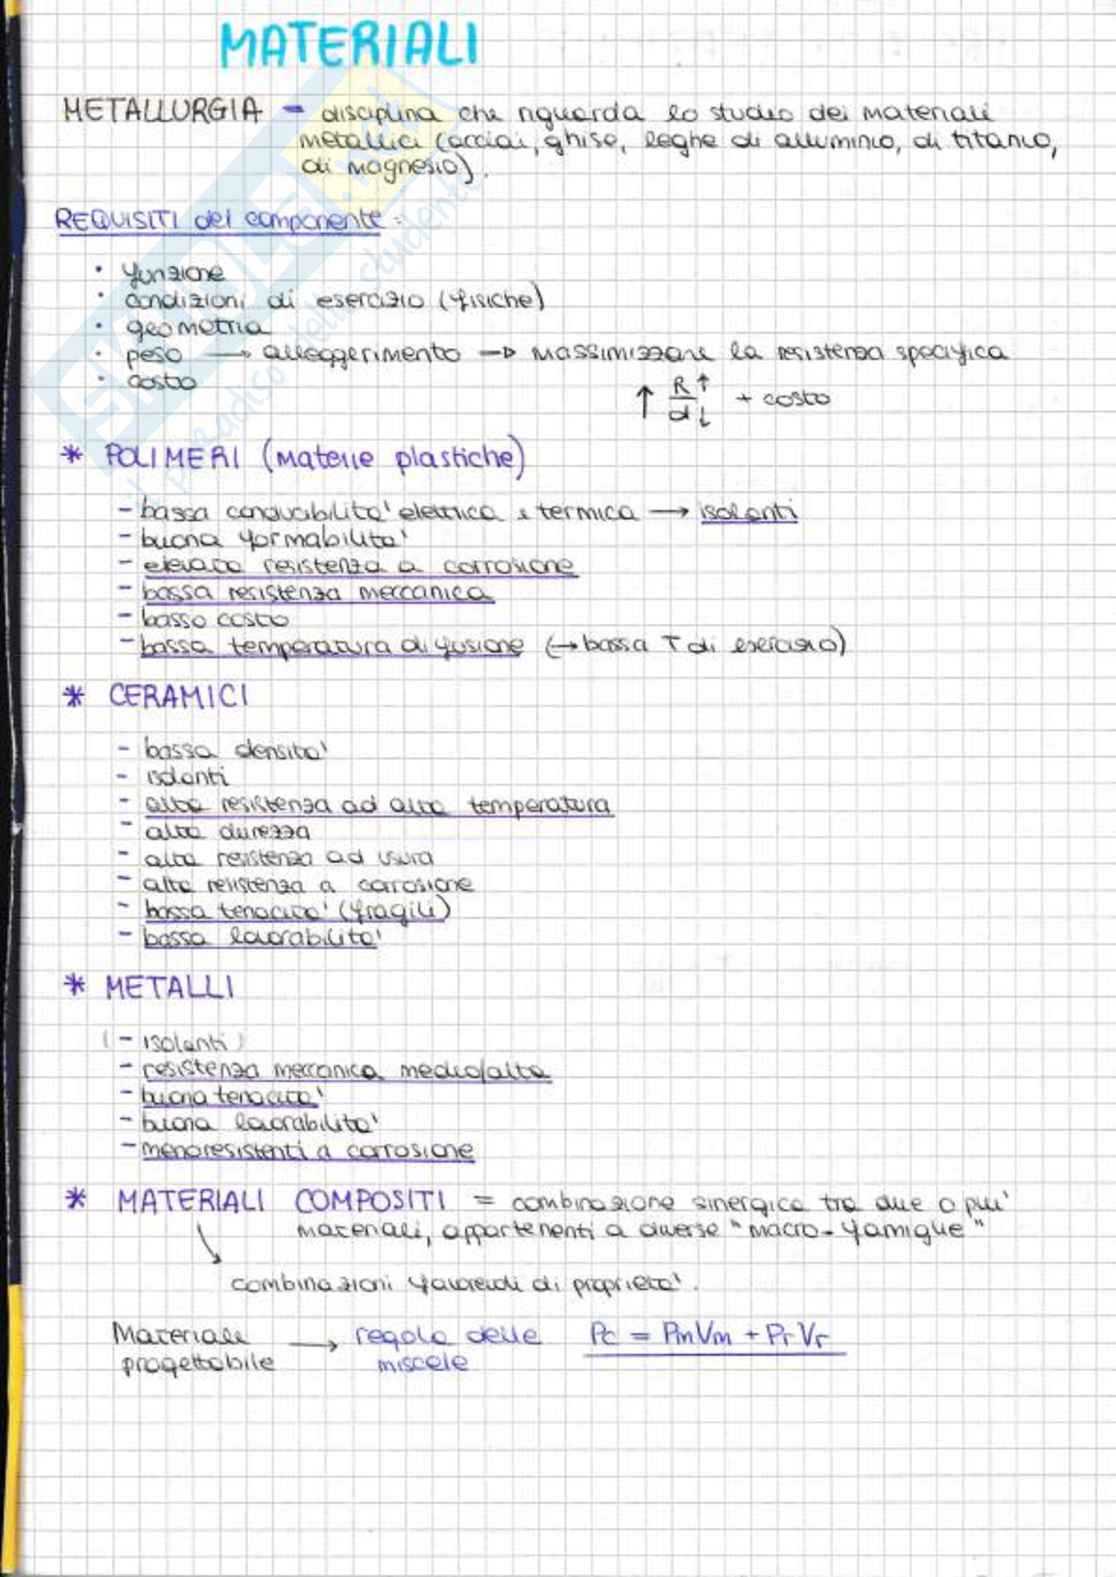 MATERIALI
METALLURGIA - disciplina che riguarda lo studio dei materiali
metallici (acciai, ghise, leghe di alluminio, di titanio,
di magnesio).
REQUISITI del componente:
• funzione
• condizioni di esercizio (fisiche)
• geometria
• peso → alleggerimento → massimizzare la resistenza specifica
• costo
↑ R↑/d↓ + costo
* POLIMERI (materie plastiche)
- bassa conducibilita' elettrica e termica → isolanti
- buona formabilita'
- elevata resistenza a corrosione
- bassa resistenza meccanica
- basso costo
- bassa temperatura di fusione (→ bassa T di esercizio)
* CERAMICI
- bassa densita'
- isolanti
- alta resistenza ad alta temperatura
- alta durezza
- alta resistenza ad usura
- alta resistenza a corrosione
- bassa tenacita' (fragili)
- bassa lavorabilita'
* METALLI
(- isolanti)
- resistenza meccanica medio/alta
- buona tenacita'
- buona lavorabilita'
- meno resistenti a corrosione
* MATERIALI COMPOSITI = combinazione sinergica tra due o piu'
materiali, appartenenti a diverse "macro-famiglie"
combinazioni favorevoli di proprieta'.
Materiale → regola delle Pc = PmVm + PrVr
progettabile miscele
SKUOLA.net
il paradiso dello studente